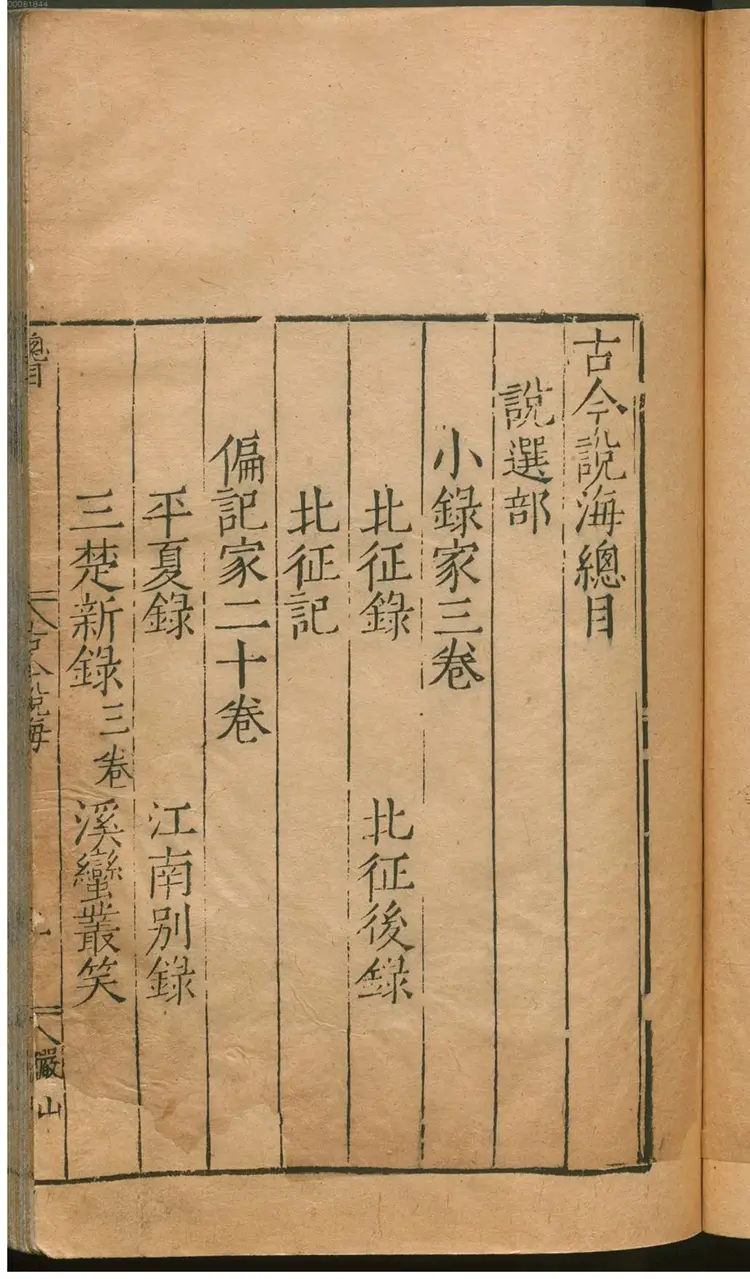 古今說海總目
說選部
小錄家三卷
北征錄　北征後錄
北征記
偏記家二十卷
平夏錄　江南別錄
三楚新錄三卷　溪蠻叢笑
總目
古今說海
一
儼山
00081844